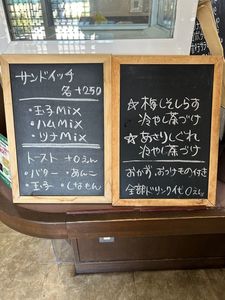 サンドイッチ
各 +250
・玉子Mix
・ハムMix
・ツナMix
トースト +0えん
・バター ・あんこ
・玉子 ・しなもん
☆梅しそしらす
冷やし茶づけ
☆あさりしぐれ
冷やし茶づけ
おかず、おつけもの付き
全部ドリンク代0えん